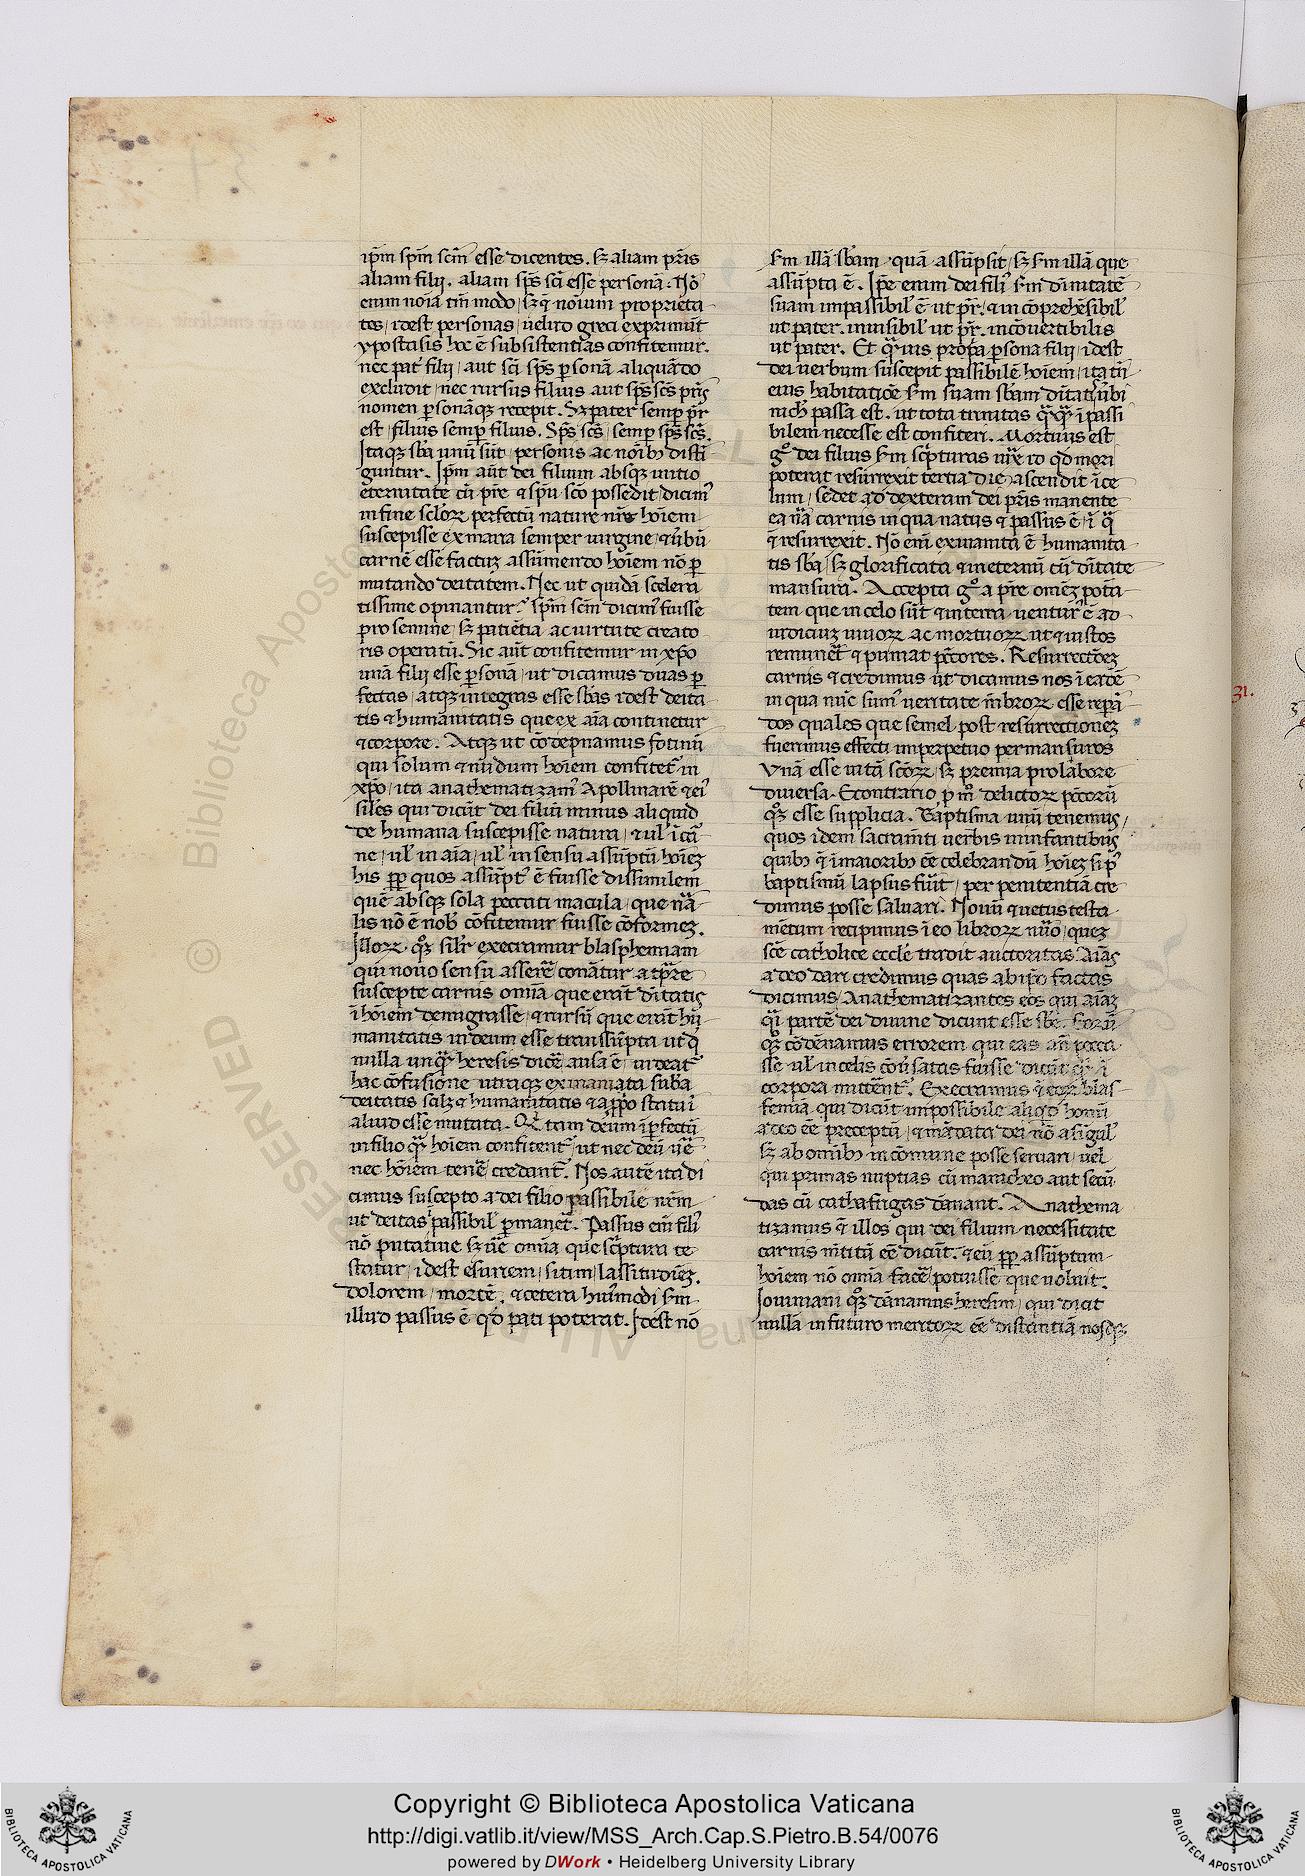 ip̄m sp̄m sc̄m esse dicentes. sꝫ aliam pr̄is
aliam filij. aliam sp̄s sc̄i esse personā. Nō
enim noīa tm̄ modo, sꝫ ⁊ noīum proprieta
tes, idest personas, uel ut greci exprimūt
ypostasis hoc ē subsistentias confitemur.
nec pat̄ filij, aut sc̄i sp̄s ꝑsonā aliquādo
excludit, nec rursus filius aut sp̄s sc̄s pr̄is
nomen ꝑsonāqꝫ recepit. Sꝫ pater semꝑ pr̄
est, filius semꝑ filius. Sp̄s sc̄s, semꝑ sp̄s sc̄s.
Itaqꝫ sb̄a unū sūt, personis ac noībꝫ disti
guntur. Ip̄m aūt dei filium absqꝫ initio
eternitate cū pr̄e ⁊ sp̄u sc̄o possedit, dicim᷒
in fine sclōꝝ perfectū nature nr̄e hoīem
suscepisse ex maria semper uirgine, ⁊ ūbū
carnē esse factuꝫ assūmendo hoīem nō ꝑ
mutando deitatem. Nec ut quidā scelera
tissime opinantur, sp̄m sc̄m dicim᷒ fuisse
pro semine, sꝫ potētia ac uirtute creato
ris operatū. Sic aūt confitemur in xp̄o
unā filij esse ꝑsonā, ut dicamus duas ꝑ
fectas, atqꝫ integras esse sb̄as idest deita
tis ⁊ humanitatis que ex aīa continetur
⁊ corpore. Atqꝫ ut cōdepnamus fotinū
qui solum ⁊ nudum hoīem confitet̄ in
xp̄o, ita anathematizam᷒ Apollinarē ⁊ ei᷒
siles qui dicūt dei filiū minus aliquid
de humana suscepisse natura, ⁊ ul̄ ī car
ne, ul̄ in aīa, ul̄ in sensu assūptū hoīeꝫ
his ꝓp̄ quos assūpt᷒ ē fuisse dissimilem
quē absqꝫ sola peccati macula, que nāa
lis nō ē nob̄ cōfitemur fuisse cōformeꝫ.
Illoꝝ qꝫ silr̄ execramur blasphemiam
qui nouo sensu asserē conātur a tp̄re
suscepte carnis omīa que erāt dīitatis
ī hoīem demigrasse, ⁊ rursū que erāt hu
manitatis in deum esse transsūpta ut q
nulla unqā heresis dicē ausa ē, uideat᷒
hac cōfusione utraqꝫ exinanita sub̄a
deitatis sclꝫ ⁊ humanitatis ⁊ a ꝓpo statu ī
aliud esse mutata. Q tam deum īperfectū
in filio qā hoīem confitent̄, ut nec deū ue
nec hoīem tenē credant̄. Nos autē ita di
cimus suscepto a dei filio passibile nr̄m
ut deitas īpassibil᷒ ꝑmanet̄. Passus eīm fili᷒
nō putatiue sꝫ ue omīa que scptura te
statur, idest esuriem, sitim, lassitudieꝫ,
dolorem, mortē, ⁊ cetera hui᷒modi sm̄
illud passus ē qd̄ pati poterat. Idest nō
sm̄ illā sb̄am quā assūpsit, sꝫ sm̄ illā que
assūpta ē. Ip̄e enim dei fili᷒ sm̄ diuitatē
suam impassibil᷒ ē ut pr̄, ⁊ incōprehēsibil᷒
ut pater, inuisibil᷒ ut pr̄, incōuertibilis
ut pater. Et quis propa ꝑsona filij, idest
dei uerbum suscepit passibilē hoīem, ita tn̄
eius habitatiōe sm̄ suam sb̄am dītatis ūbi
nich passa est, ut tota trinitas ī passi
bilem necesse est confiteri. Mortuus est
g᷒ dei filius sm̄ scpturas iux id qd̄ mori
poterat resurrexit tertia die, ascendit ī ce
lum, sedet ad dexteram dei pr̄is manente
ea nāa carnis in qua natus ⁊ passus ē, ī q
⁊ resurrexit. Nō eīm exinanita ē humanita
tis sb̄a, sꝫ glorificata ⁊ in eternū cū dītate
mansura. Accepta g᷒ a pr̄e omēꝫ potā
tem que in celo sūt ⁊ in terra uentur᷒ ē ad
iudiciuꝫ uiuoꝝ ac mortuoꝝ ut ⁊ iustos
remunet ⁊ puniat pctores. Resurrectōeꝫ
carnis ⁊ credimus ut dicamus nos ī eadē
in qua nūc sum᷒ ueritate mbroꝝ esse repā
dos quales que semel post resurrectioneꝫ
fuerimus effecti imperpetuo permansuros
Vnā esse uitā scōꝝ, sꝫ premia pro labore
diuersa. Econtrario p mo delictoꝝ pctōrū
qꝫ esse supplicia. Baptisma unū tenemus,
quos idem sacramti uerbis in infantibus
quibꝫ ⁊ ī maioribꝫ eē celebrandū hoīeꝫ si p᷒
baptismū lapsus fuīt, per penitentiā cre
dimus posse saluari. Nouū ⁊ uetus testa
mētum recipimus ī eo libroꝝ nūo, queꝫ
scē catholice eccl̄e tradit auctoritas. Aīas
a deo dari credimus quas ab ip̄o factas
dicimus, Anathematizantes eos qui aīaꝫ
q partē dei diuine dicunt esse sbe. Eorū
qꝫ cōdēnamus errorem qui eas an̄ pecca
sse ul̄ in celis cōūsatas fuisse dicūt q ī
corpora mittent̄. Execramus ⁊ eoꝝ blas
femiā qui dicūt impossibile aliqd̄ homī
a deo eē preceptū, ⁊ mādata dei nō a sīgul᷒
sꝫ ab omībꝫ in cōmune posse seruari, uel
qui primas nuptias cū manicheo aut secū
das cū cathafrigas dānant. Anathema
tizamus ⁊ illos qui dei filium necessitate
carnis mtitū eē dicūt, ⁊ eū ꝓp̄ assūptum
hoīem nō omīa facē potuisse que uoluit.
Iouiniani qꝫ dānamus heresim, qui dicit
nullā in futuro meritoꝝ eē distantiā nosqꝫ
31.
RESERVED © Biblioteca Aposto
Copyright © Biblioteca Apostolica Vaticana
http://digi.vatlib.it/view/MSS_Arch.Cap.S.Pietro.B.54/0076
powered by DWork • Heidelberg University Library
BIBLIOTECA APOSTOLICA VATICANA
BIBLIOTECA APOSTOLICA VATICANA